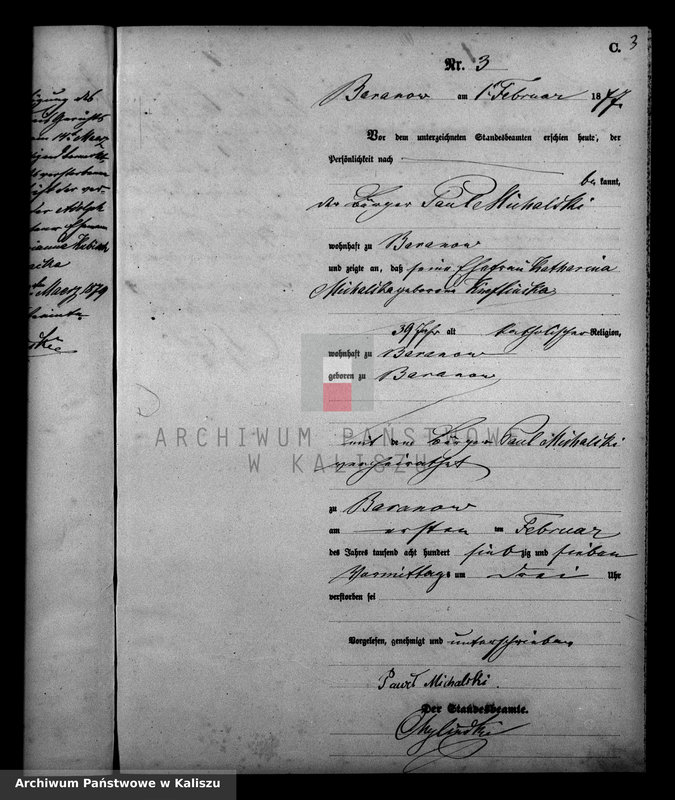 igung des
und Gerichts
C. 3
Nr. 3
Baranow am 1. Februar 1877
Vor dem unterzeichneten Standesbeamten erschien heute, der
Persönlichkeit nach
be kannt,
der Bürger Paul Michalski
wohnhaft zu Baranow
und zeigte an, daß seine Ehefrau Katharina
Michalska geborene
39 Jahr alt katholischer Religion,
wohnhaft zu Baranow
geboren zu Baranow
mit dem Bürger Paul Michalski
verheirathet
zu Baranow
am ersten ten Februar
des Jahres tausend acht hundert siebzig und sieben
Vormittags um drei Uhr
verstorben sei
Vorgelesen, genehmigt und unterschrieben
Paweł Michalski.
Der Standesbeamte.
Maerz 1879
ARCHIWUM PAŃSTWOWE
W KALISZU
Archiwum Państwowe w Kaliszu